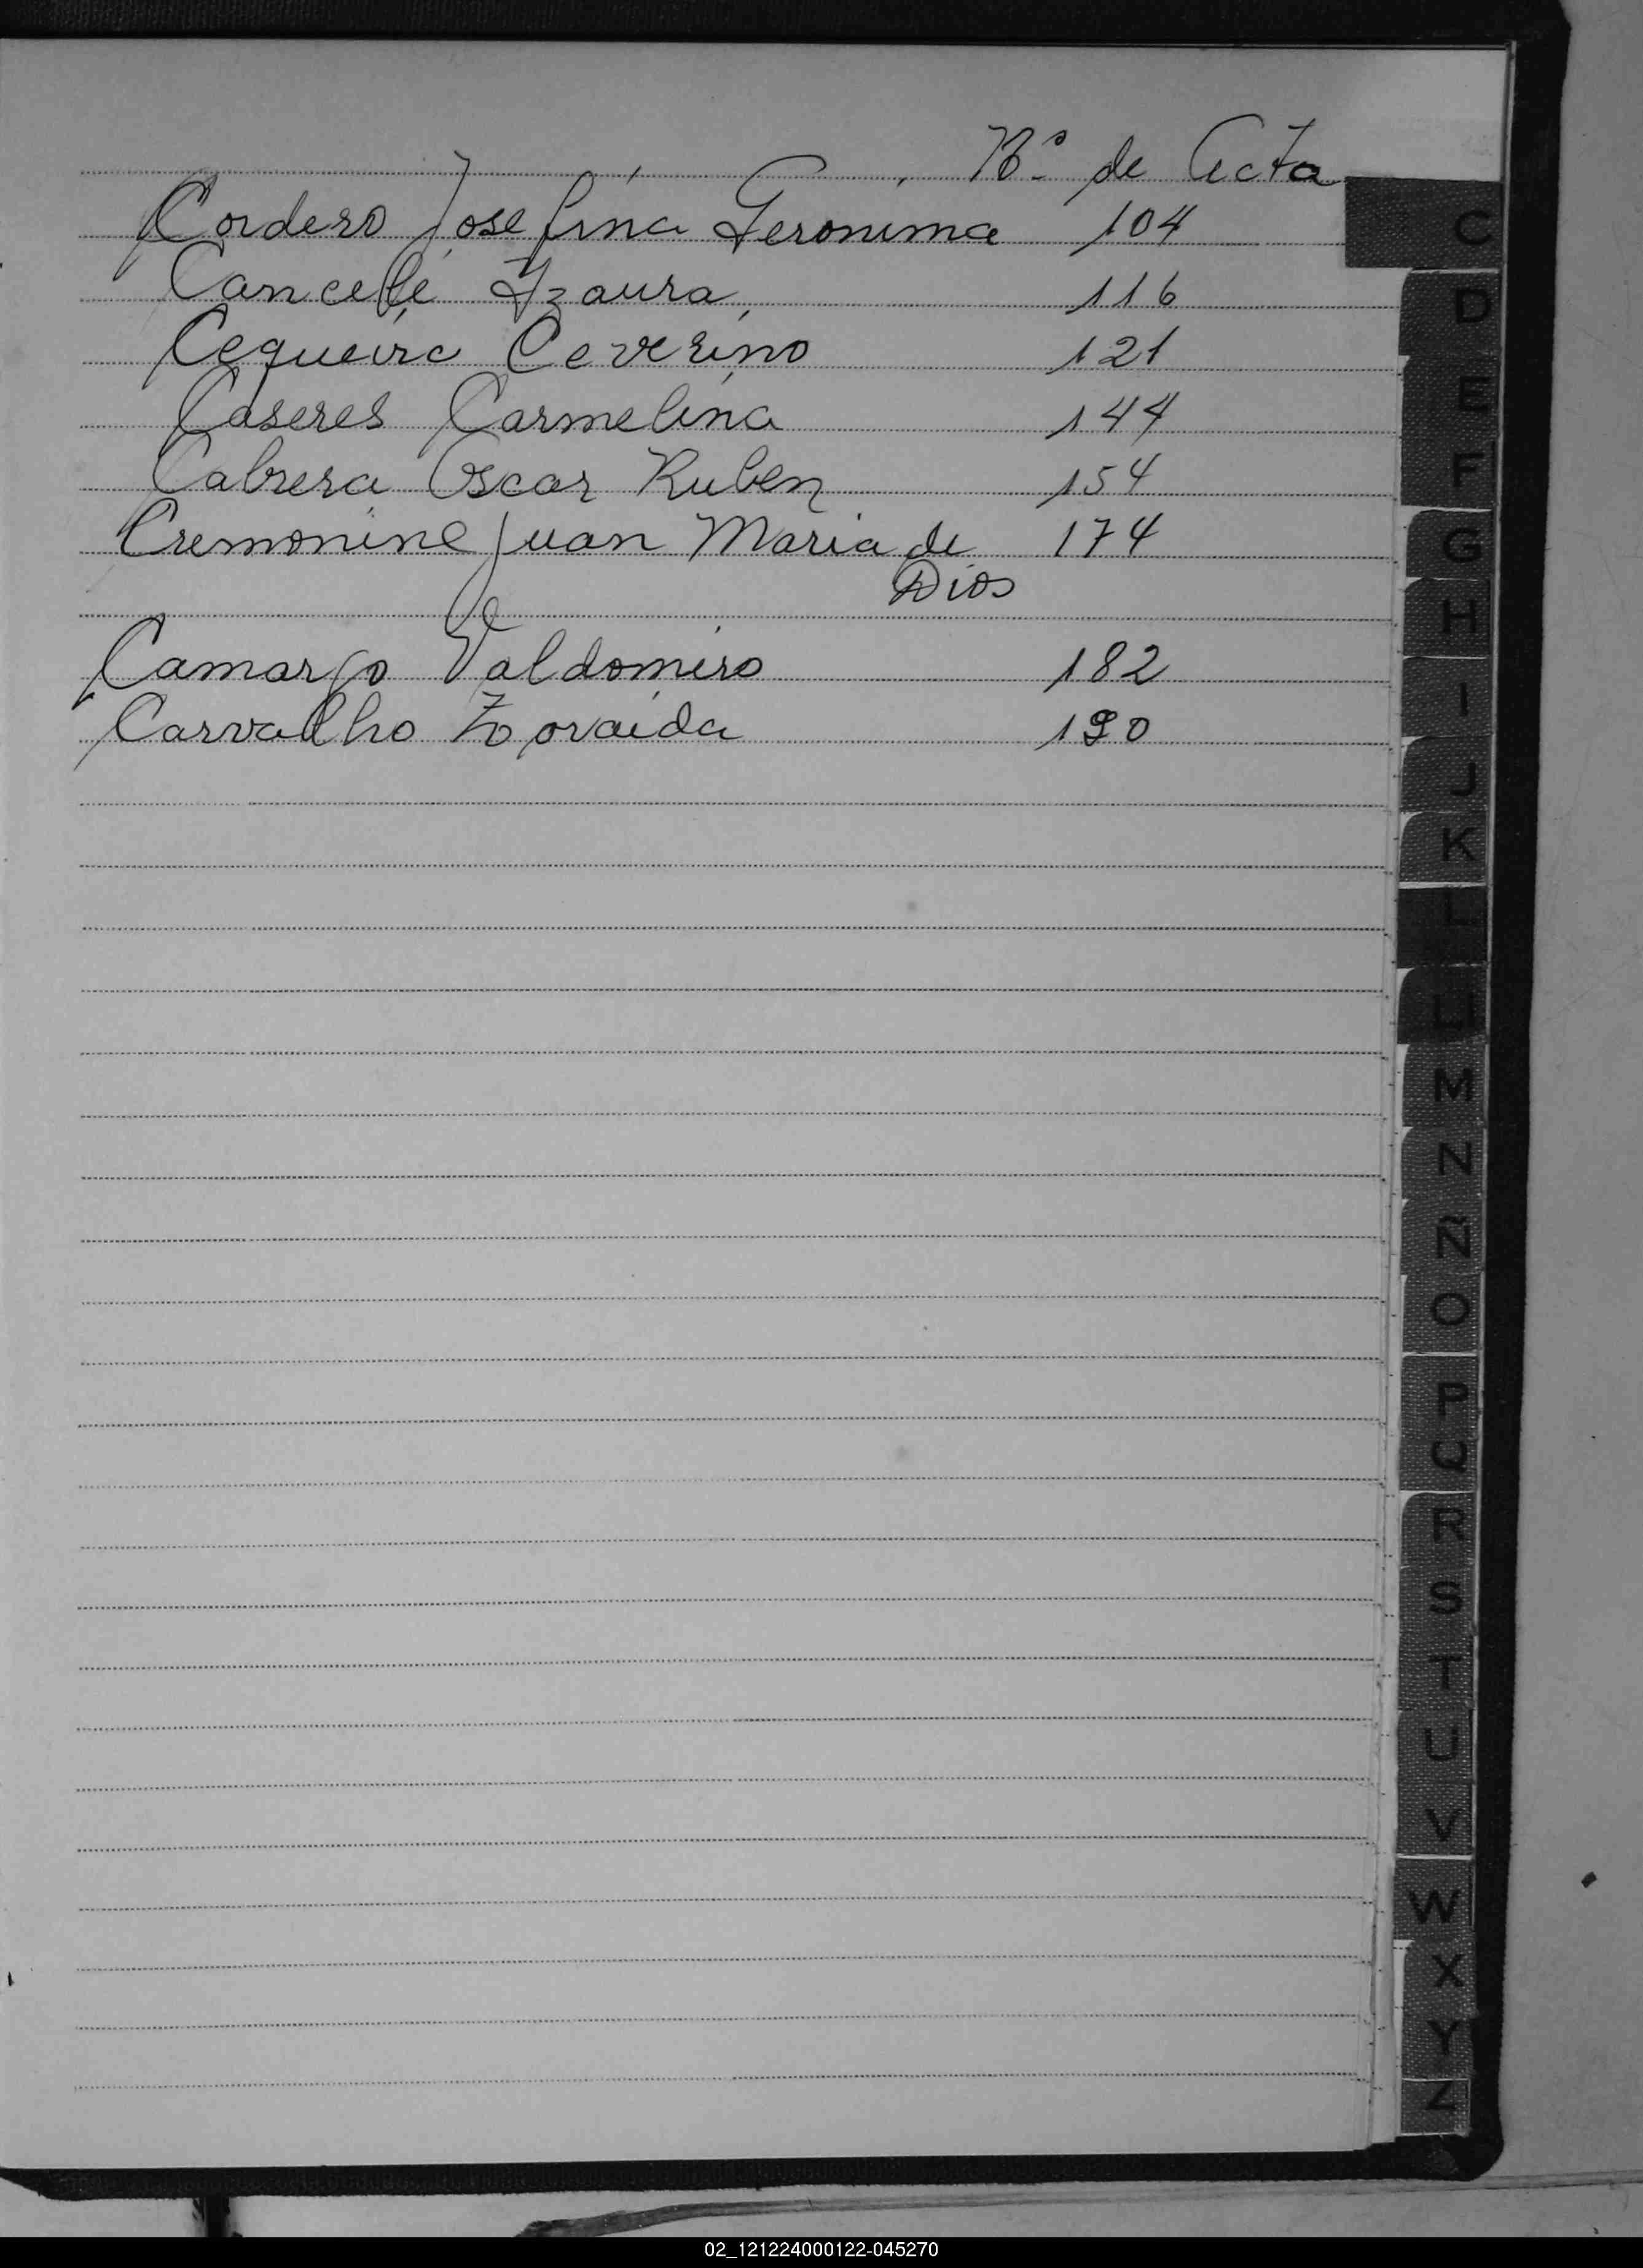 Nº de Acta
Cordero Josefina Geronima 104
Cancele Izaura 116
Cequeira Ceverino 121
Caseres Carmelina 144
Cabrera Oscar Ruben 154
Cremonine Juan Maria de 174
Dios
Camargo Valdomiro 182
Carvalho Zoraida 190
C
D
E
F
G
H
I
J
K
L
Ll
M
N
Ñ
O
P
Q
R
S
T
U
V
W
X
Y
Z
02_121224000122-045270